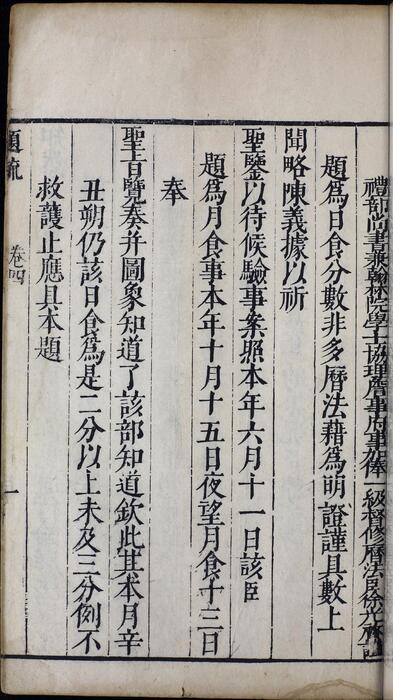 禮部尚書兼翰林院學士協理詹事府事加俸一級督修曆法臣徐光啓謹
題為日食分數非多曆法藉為明證謹具數上
聞略陳義據以祈
聖鑒以待候驗事案照本年六月十一日該臣
題為月食事本年十月十五日夜望月食十三日
奉
聖旨覽奏并圖象知道了該部知道欽此其本月辛
丑朔仍該日食為是二分以上未及三分例不
救護止應具本題
題疏
卷四
一